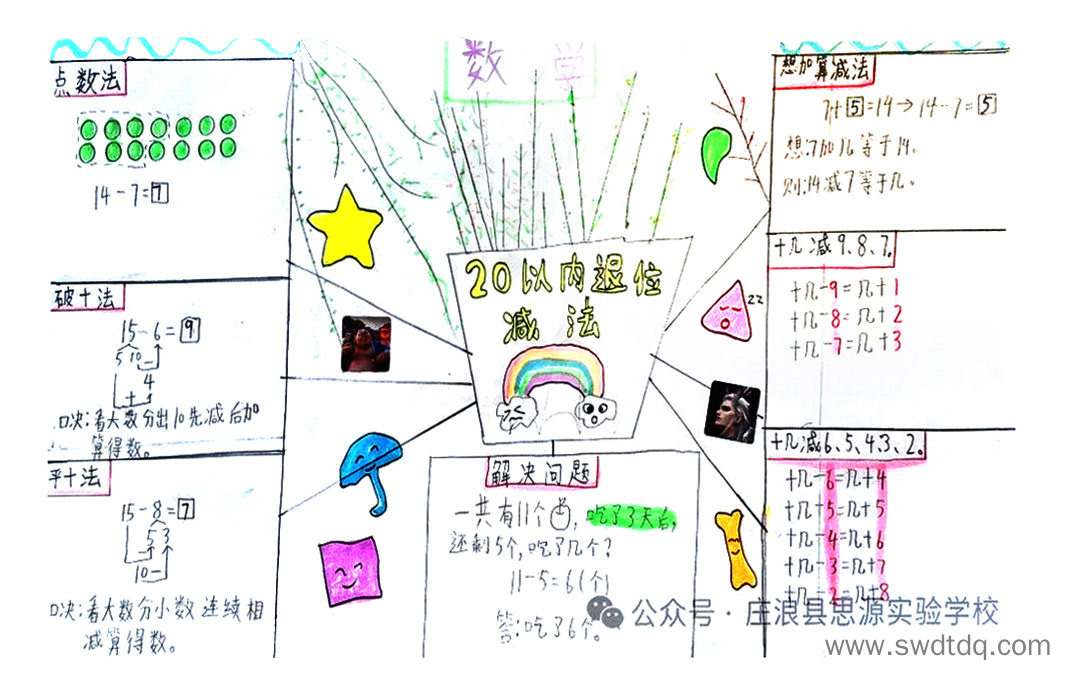 数 学
点数法
14-7=7
破十法
15-6=9
5 10
4
+
口决:看大数分出10先减后加
算得数。
平十法
15-8=7
5 3
10-
口决:看大数分小数连续相
减算得数。
20以内退位
减法
解决问题
一共有11个,吃了3天后,
还剩5个,吃了几个?
11-5=6(个)
答:吃了6个。
想加算减法
7+5=14→14-7=5
想:7加几等于14,
则:14减7等于几。
十几减9、8、7。
十几-9=几+1
十几-8=几+2
十几-7=几+3
十几减6、5、4、3、2。
十几-6=几+4
十几-5=几+5
十几-4=几+6
十几-3=几+7
十几-2=几+8
zz
公众号·庄浪县思源实验学校
www.swdtdq.com